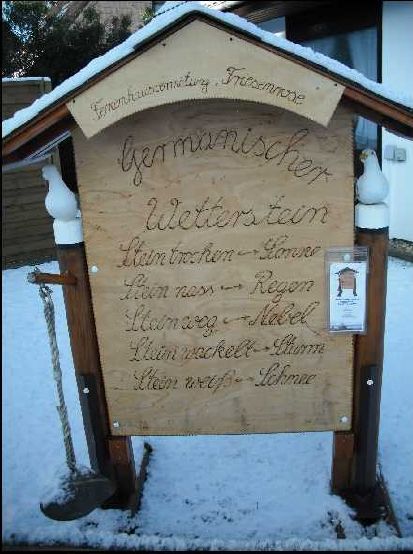 Ferienhausvermietung "Friesenrose"
Germanischer
Wetterstein
Stein trocken → Sonne
Stein nass → Regen
Stein weg → Nebel
Stein wackelt → Sturm
Stein weiß → Schnee